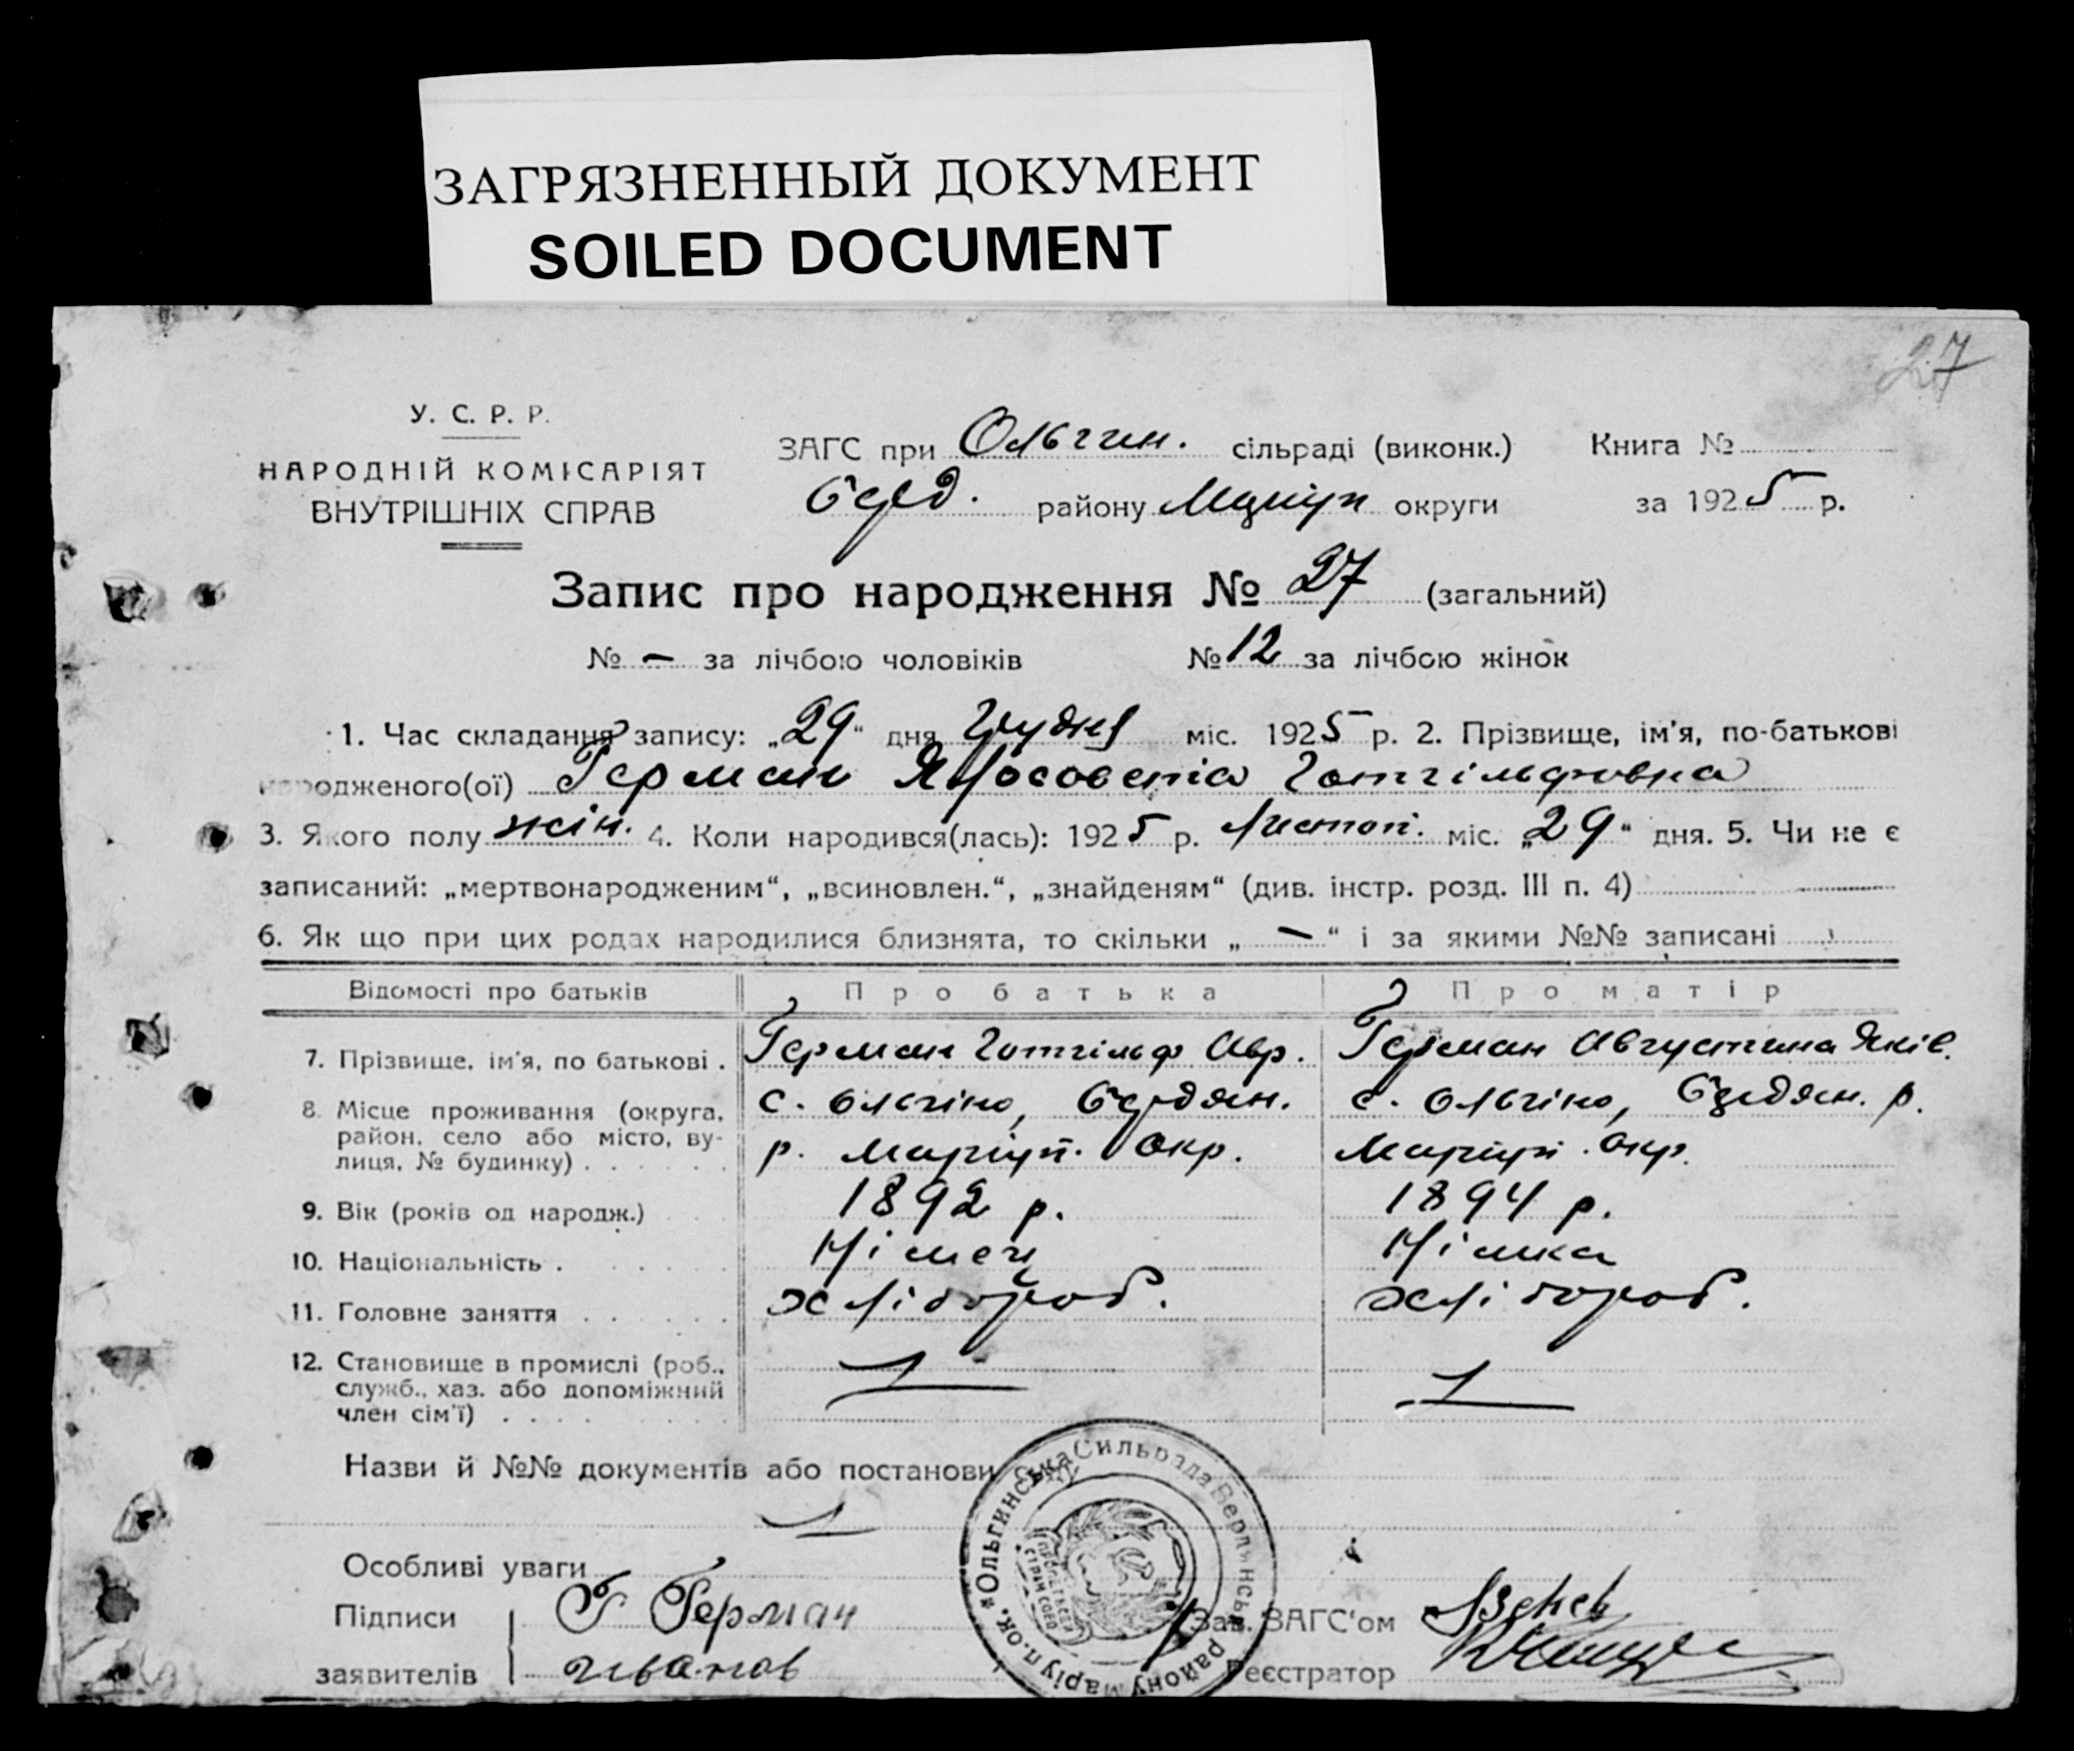 ЗАГРЯЗНЕННЫЙ ДОКУМЕНТ
SOILED DOCUMENT
27
У. С. Р. Р.
НАРОДНІЙ КОМІСАРІЯТ
ВНУТРІШНІХ СПРАВ
ЗАГС при Ольгин. сільраді (виконк.) Книга №
Берд. району Маріуп округи за 1925 р.
Запис про народження № 27 (загальний)
№ – за лічбою чоловіків № 12 за лічбою жінок
1. Час складання запису: „29“ дня Грудня міс. 1925 р. 2. Прізвище, ім'я, по-батькові
народженого(ої) Герман Готгільфовна
3. Якого полу жін. 4. Коли народився(лась): 1925 р. Листоп. міс. „29“ дня. 5. Чи не є
записаний: „мертвонародженим“, „всиновлен.“, „знайденям“ (див. інстр. розд. III п. 4)
6. Як що при цих родах народилися близнята, то скільки „ – “ і за якими №№ записані
Відомості про батьків Про батька Про матір
7. Прізвище, ім'я, по батькові . Герман Готгільф Авр. Герман Августина Яків.
8. Місце проживання (округа, район, село або місто, вулиця, № будинку) . . . . . . с. Ольгіно, Бердян. р. Маріуп. Окр. с. Ольгіно, Бердян. р. Маріуп. Окр.
9. Вік (років од народж.) 1892 р. 1894 р.
10. Національність . Німець Німка
11. Головне заняття хлібороб. хлібороб.
12. Становище в промислі (роб., служб., хаз. або допоміжний член сім'ї)
Назви й №№ документів або постанови суду
Особливі уваги
Підписи заявителів Г Герман
Иванов
Зав. ЗАГС'ом
Реєстратор
*Ольгинська Сильрада Бердянськ. району Маріуп. ок.